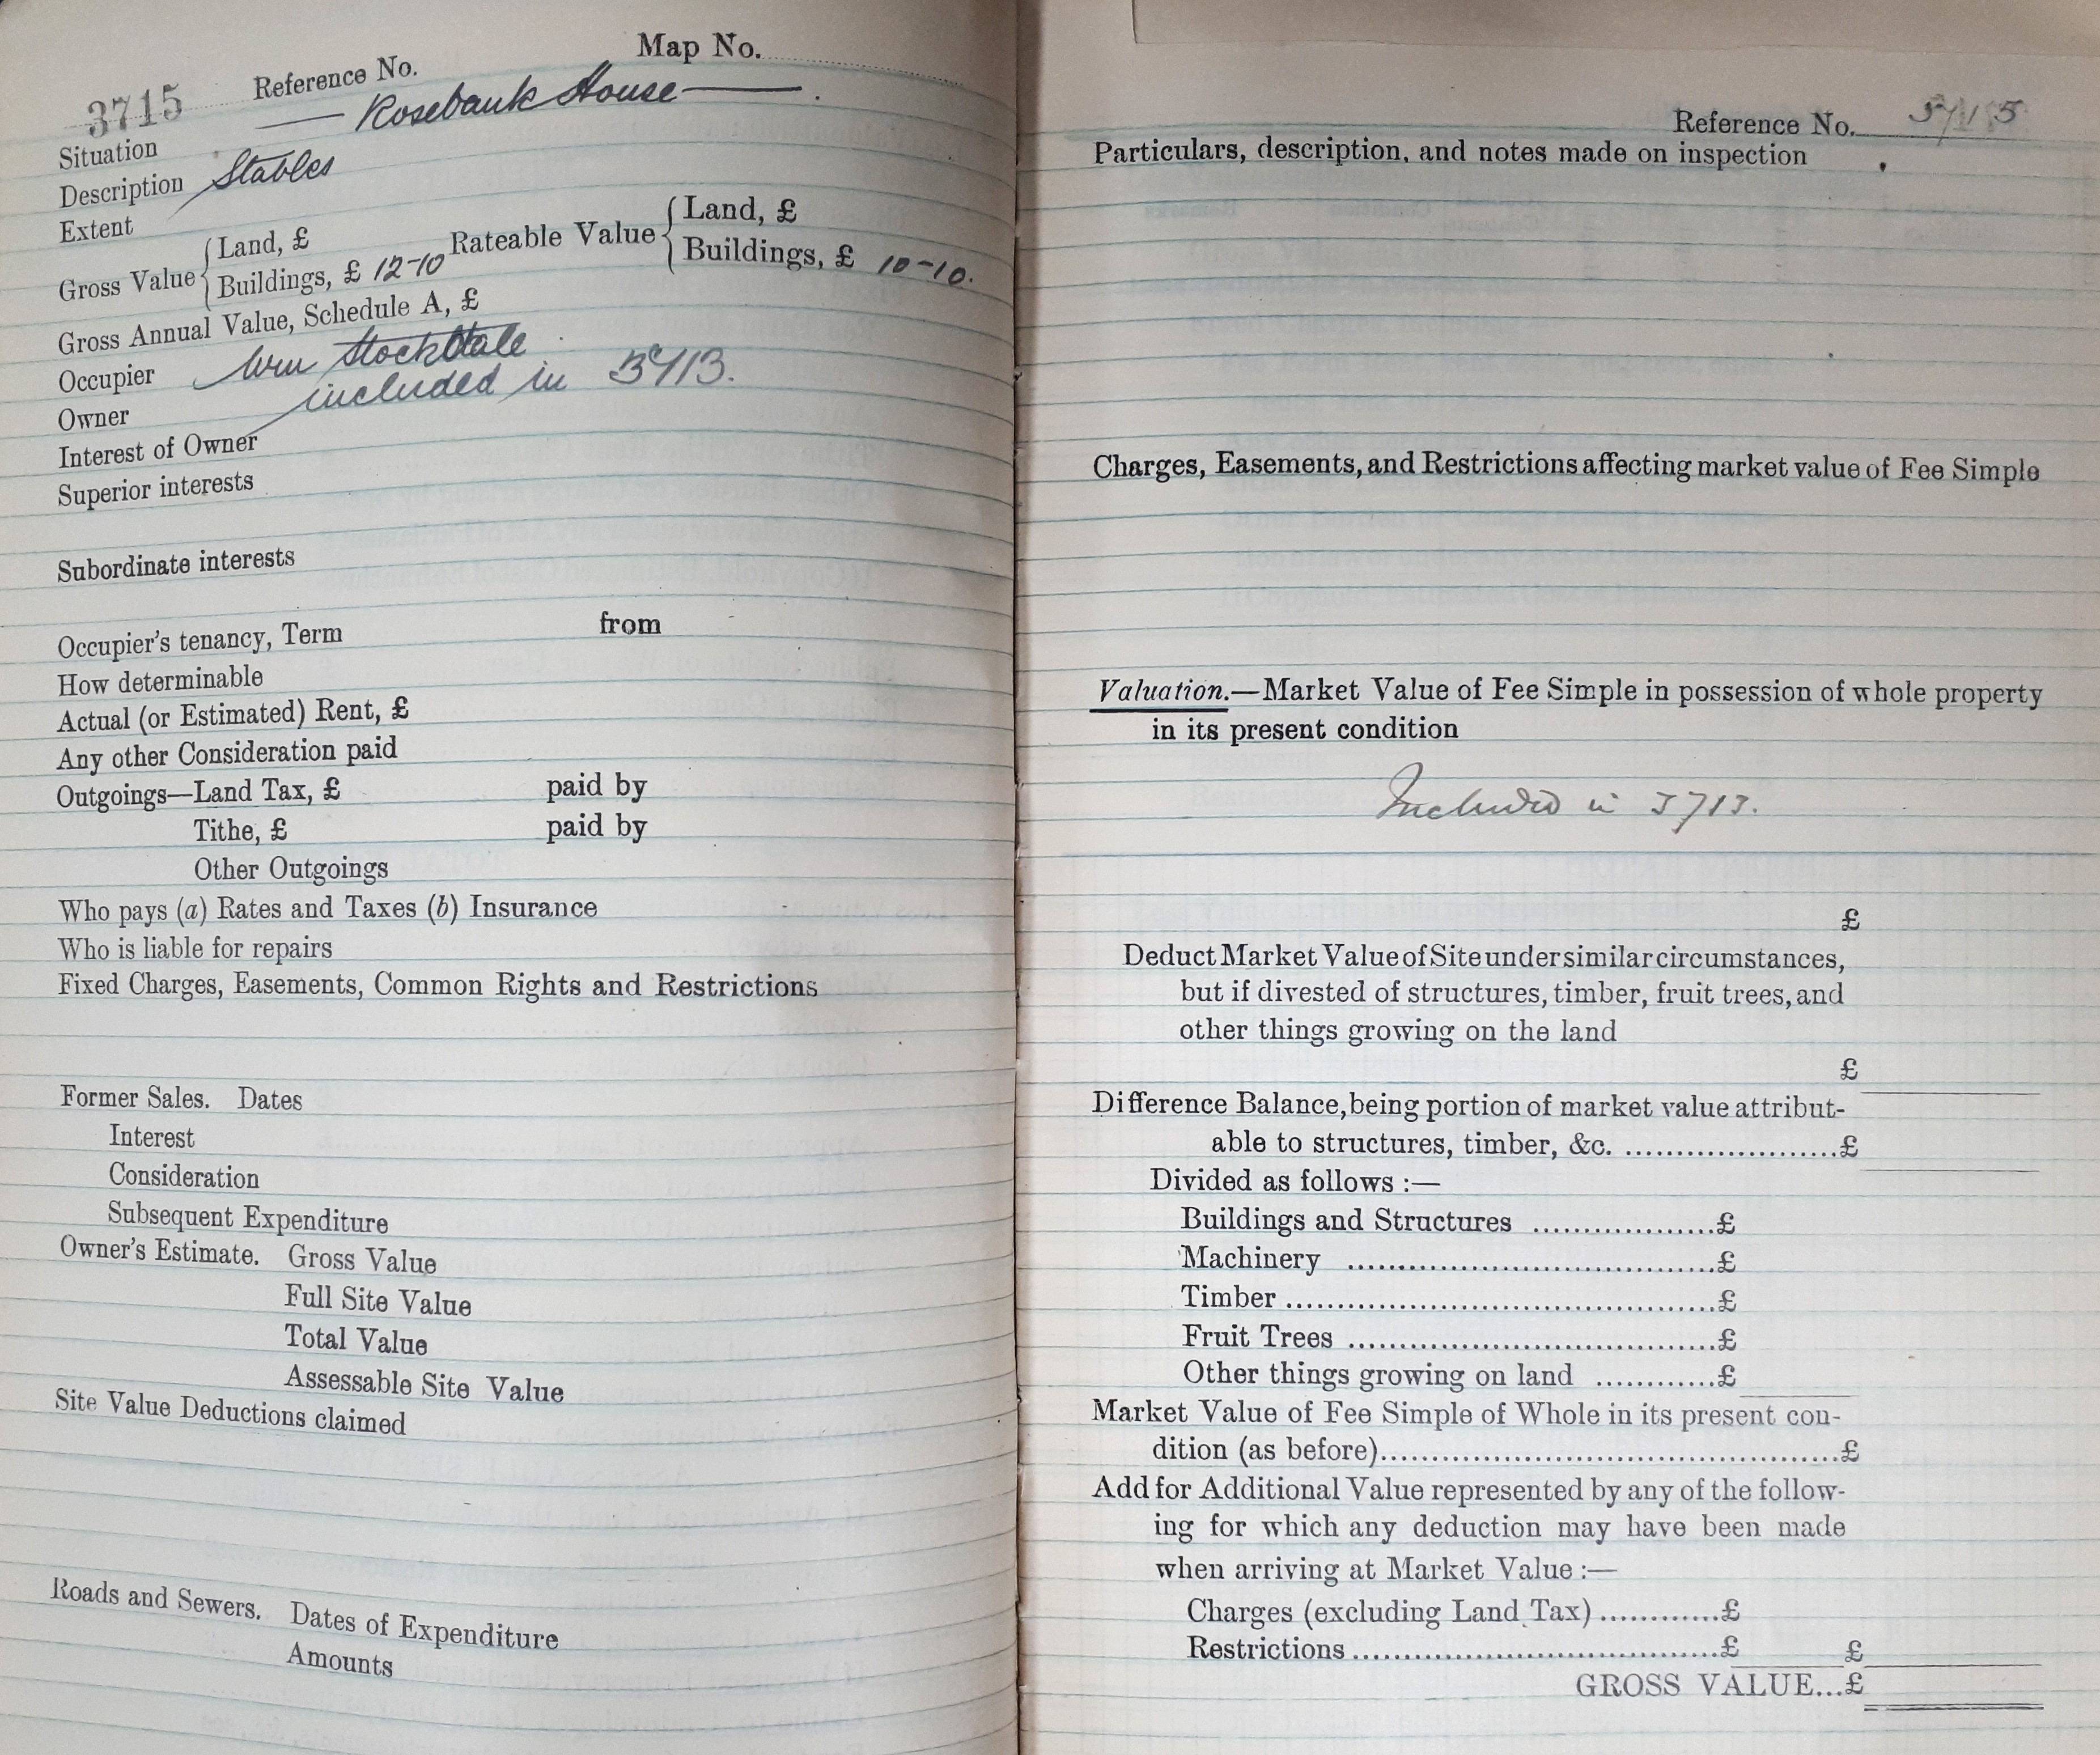 Map No.
3715 Reference No.
Rosebank House
Situation
Description Stables
Extent
Gross Value { Land, £
Buildings, £ 12-10
Rateable Value { Land, £
Buildings, £ 10-10.
Gross Annual Value, Schedule A, £
Occupier Wm Stockdale
included in 3713.
Owner
Interest of Owner
Superior interests
Subordinate interests
Occupier's tenancy, Term from
How determinable
Actual (or Estimated) Rent, £
Any other Consideration paid
Outgoings—Land Tax, £ paid by
Tithe, £ paid by
Other Outgoings
Who pays (a) Rates and Taxes (b) Insurance
Who is liable for repairs
Fixed Charges, Easements, Common Rights and Restrictions
Former Sales. Dates
Interest
Consideration
Subsequent Expenditure
Owner's Estimate. Gross Value
Full Site Value
Total Value
Assessable Site Value
Site Value Deductions claimed
Roads and Sewers. Dates of Expenditure
Amounts
Reference No. 3715
Particulars, description, and notes made on inspection
Charges, Easements, and Restrictions affecting market value of Fee Simple
Valuation.—Market Value of Fee Simple in possession of whole property
in its present condition
Included in 3713.
£
Deduct Market Value of Site under similar circumstances,
but if divested of structures, timber, fruit trees, and
other things growing on the land
£
Difference Balance, being portion of market value attribut-
able to structures, timber, &c. ......................£
Divided as follows :—
Buildings and Structures ..................£
Machinery .....................................£
Timber ...........................................£
Fruit Trees .....................................£
Other things growing on land ............£
Market Value of Fee Simple of Whole in its present con-
dition (as before)..............................................£
Add for Additional Value represented by any of the follow-
ing for which any deduction may have been made
when arriving at Market Value :—
Charges (excluding Land Tax) ............£
Restrictions .....................................£ £
GROSS VALUE...£